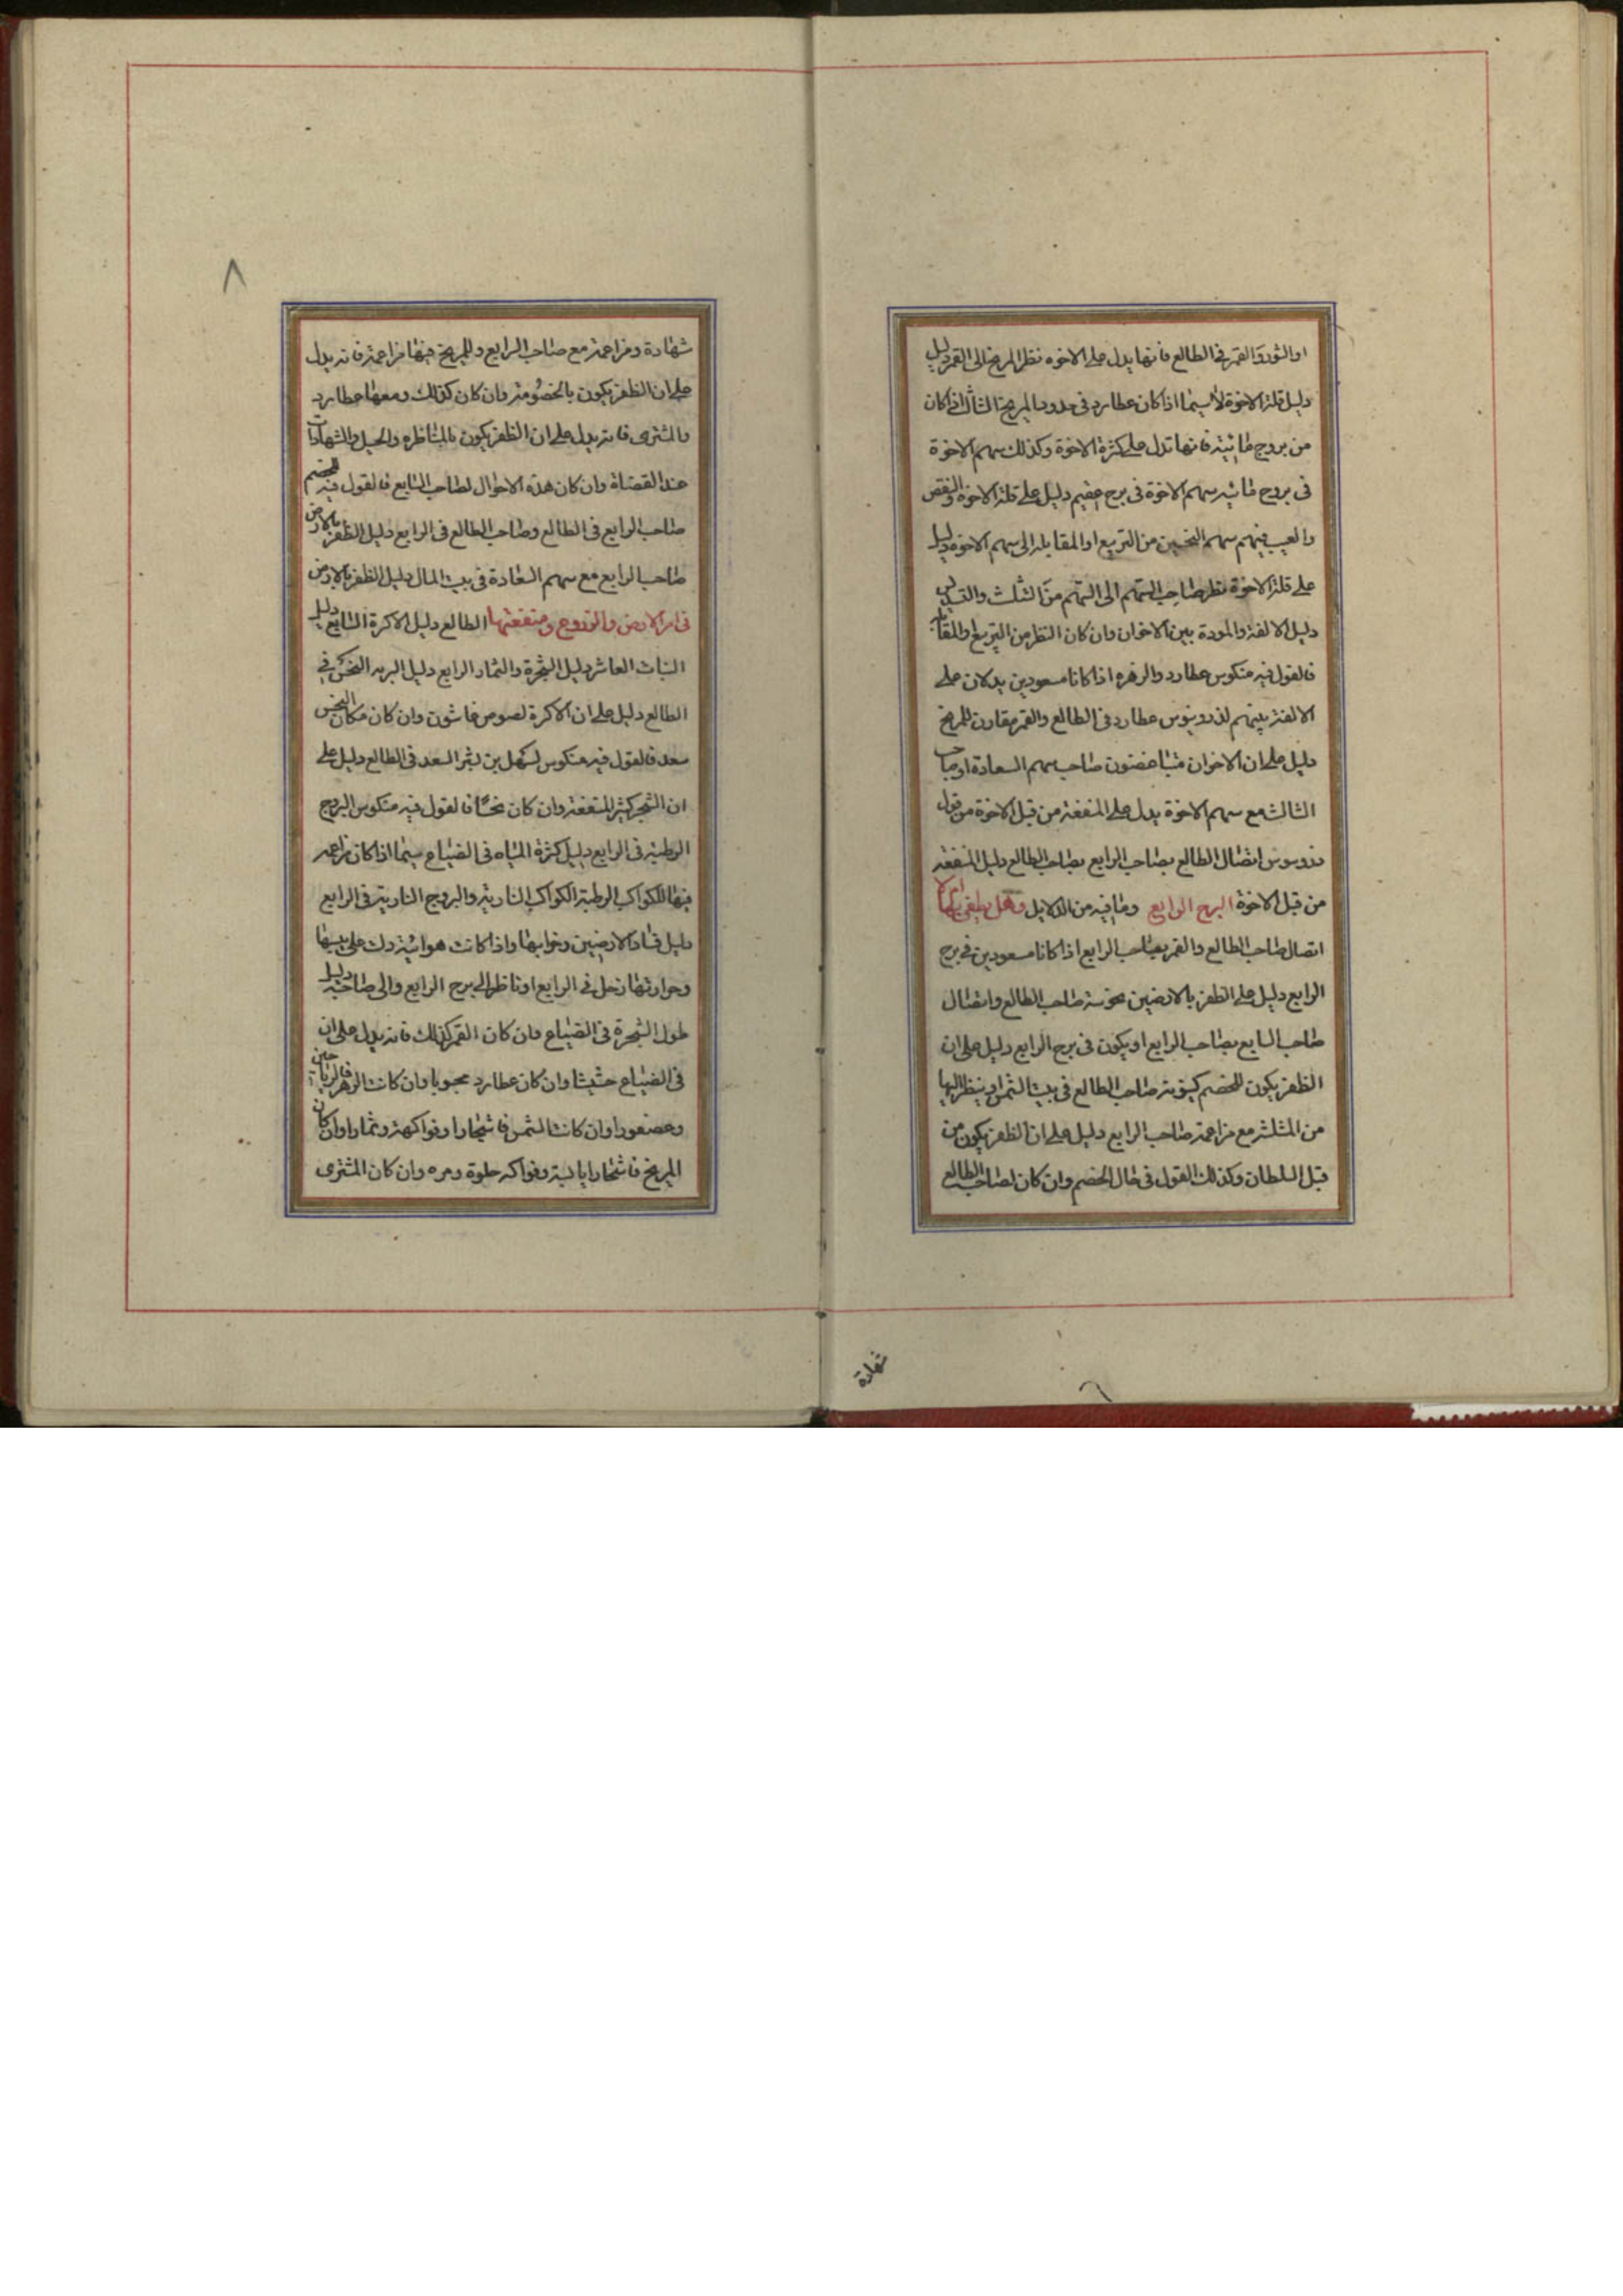 او الثور والقمر في الطالع فانها يدل على الاخوه نظر المريخ الى القمر دليل
دليل قلة الاخوة لا سيما اذا كان عطارد في حدود المريخ الثالث اذا كان
من بروج مائية فانها تدل على كثرة الاخوة وكذلك سهم الاخوة
في بروج مائية سهم الاخوة في برج عقيم دليل على قلة الاخوة والنقص
والعيب فيهم سهم النحسين من التربيع او المقابلة الى سهم الاخوة دليل
على قلة الاخوة نظر صاحب السهم الى السهم من الثلث والتسديس
دليل الالفة والمودة بين الاخوان وان كان النظر من التربيع والمقابلة
فالقول فيه منكوس عطارد والزهره اذا كانا مسعودين يدلان على
الالفة بينهم لذروثيوس عطارد في الطالع والقمر مقارن للمريخ
دليل على ان الاخوان متباغضون صاحب سهم السعادة او صاحب
الثالث مع سهم الاخوة يدل على المنفعة من قبل الاخوة من قول
اتصال الطالع بصاحب الرابع بصاحب الطالع دليل المنفعة
من قبل الاخوة البرج الرابع وما فيه من الدلايل وهل
اتصال صاحب الطالع والقمر بصاحب الرابع اذا كانا مسعودين في برج
الرابع دليل على الظفر بالارضين نحوسة صاحب الطالع واتصال
صاحب السابع بصاحب الرابع او يكون في برج الرابع دليل على ان
الظفر يكون للخصم كينونة صاحب الطالع في بيت الشمس او ينظر اليها
من المثلثة مع مزاعمة صاحب الرابع دليل على ان الظفر يكون من
قبل السلطان وكذلك القول في حال الخصم وان كان لصاحب الطالع
شهادة
٨
شهادة ومزاعمة مع صاحب الرابع وللمريخ فيها مزاعمة فانه يدل
على ان الظفر يكون بالخصومة وان كان كذلك ومعها عطارد
والمشترى فانه يدل على ان الظفر يكون بالمناظره والحيل والشهادات
عند القضاة وان كان هذه الاحوال لصاحب السابع فالقول فيه للخصم
صاحب الرابع في الطالع وصاحب الطالع في الرابع دليل الظفر بالارض
صاحب الرابع مع سهم السعادة في بيت المال دليل الظفر بالارض
في امر الارض والزروع ومنفعتها الطالع دليل الاكرة السابع دليل
النبات العاشر دليل الشجرة والثمار الرابع دليل البريه النحس في
الطالع دليل على ان الاكرة لصوص خاشون وان كان مكان النحس
سعد فالقول فيه منكوس لسهل بن بشر السعد في الطالع دليل على
ان الشجر كثير المنفعة وان كان نحسًا فالقول فيه منكوس البروج
الرطبة في الرابع دليل كثرة المياه في الضياع سيما اذا كان مزاعمه
فيها للكواكب الرطبة الكواكب النارية والبروج النارية في الرابع
دليل فساد الارضين وخرابها واذا كانت هوائية دلت على يبسها
وحرارتها زحل في الرابع او ناظر الى برج الرابع والى صاحبه دليل
طول الشجرة في الضياع وان كان القمر كذلك فانه يدل على ان
في الضياع حشيشا وان كان عطارد محبوبا وان كانت الزهرة
وعصفورا وان كانت الشمس فاشجارا وفواكهة وثمارا وان كان
المريخ فاشجارا يابسة وفواكه حلوة ومره وان كان المشترى